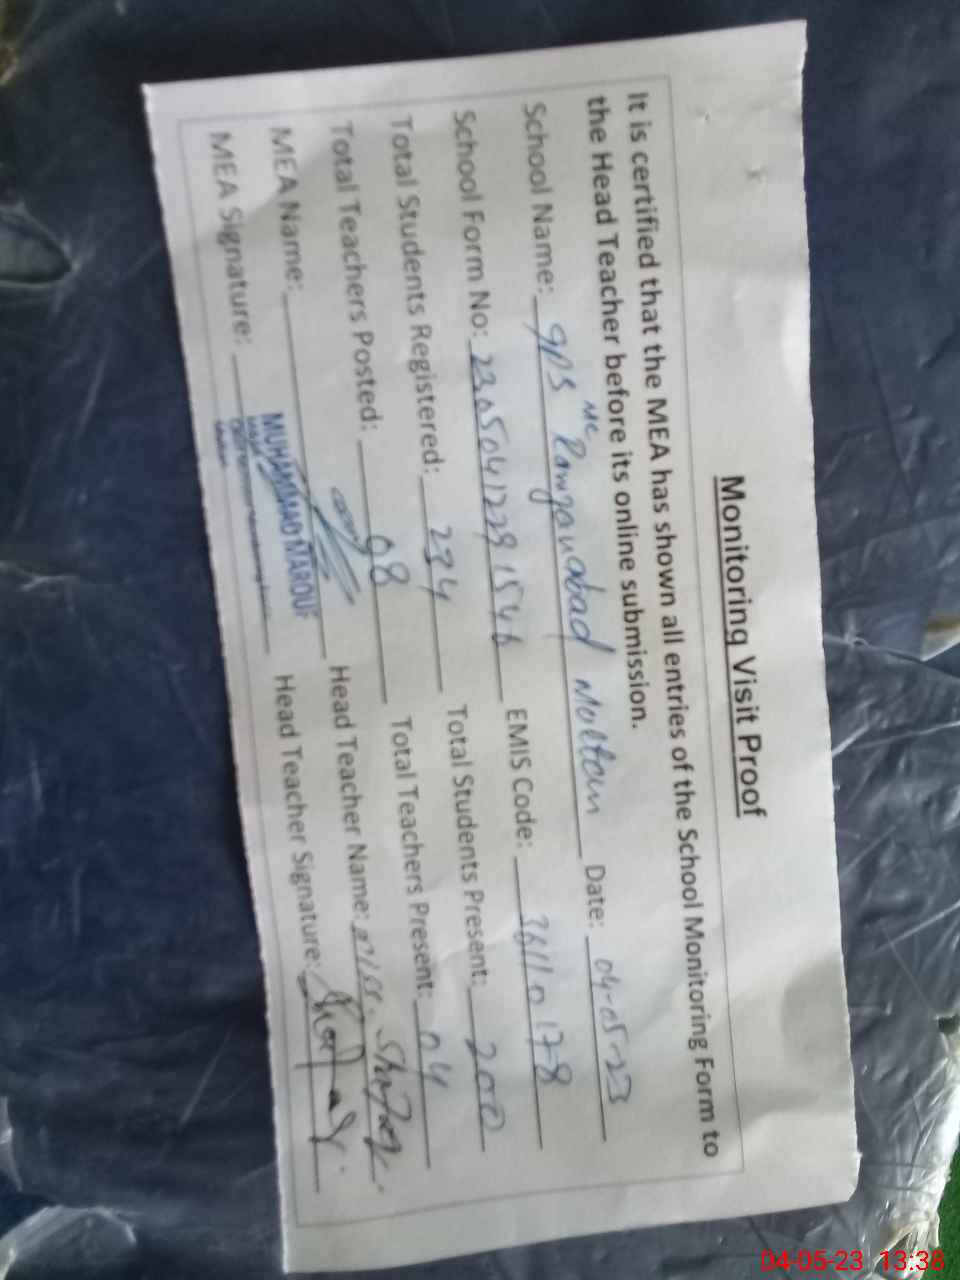 Monitoring Visit Proof
It is certified that the MEA has shown all entries of the School Monitoring Form to
the Head Teacher before its online submission.
School Name: GPS MC Ramzanabad Multan Date: 04-05-23
School Form No: 23050412291546 EMIS Code: 36110178
Total Students Registered: 234 Total Students Present: 200
Total Teachers Posted: 08 Total Teachers Present: 04
MEA Name: Head Teacher Name: Miss. Shafaq
MEA Signature: MUHAMMAD MAROUF Head Teacher Signature:
04-05-23 13:38